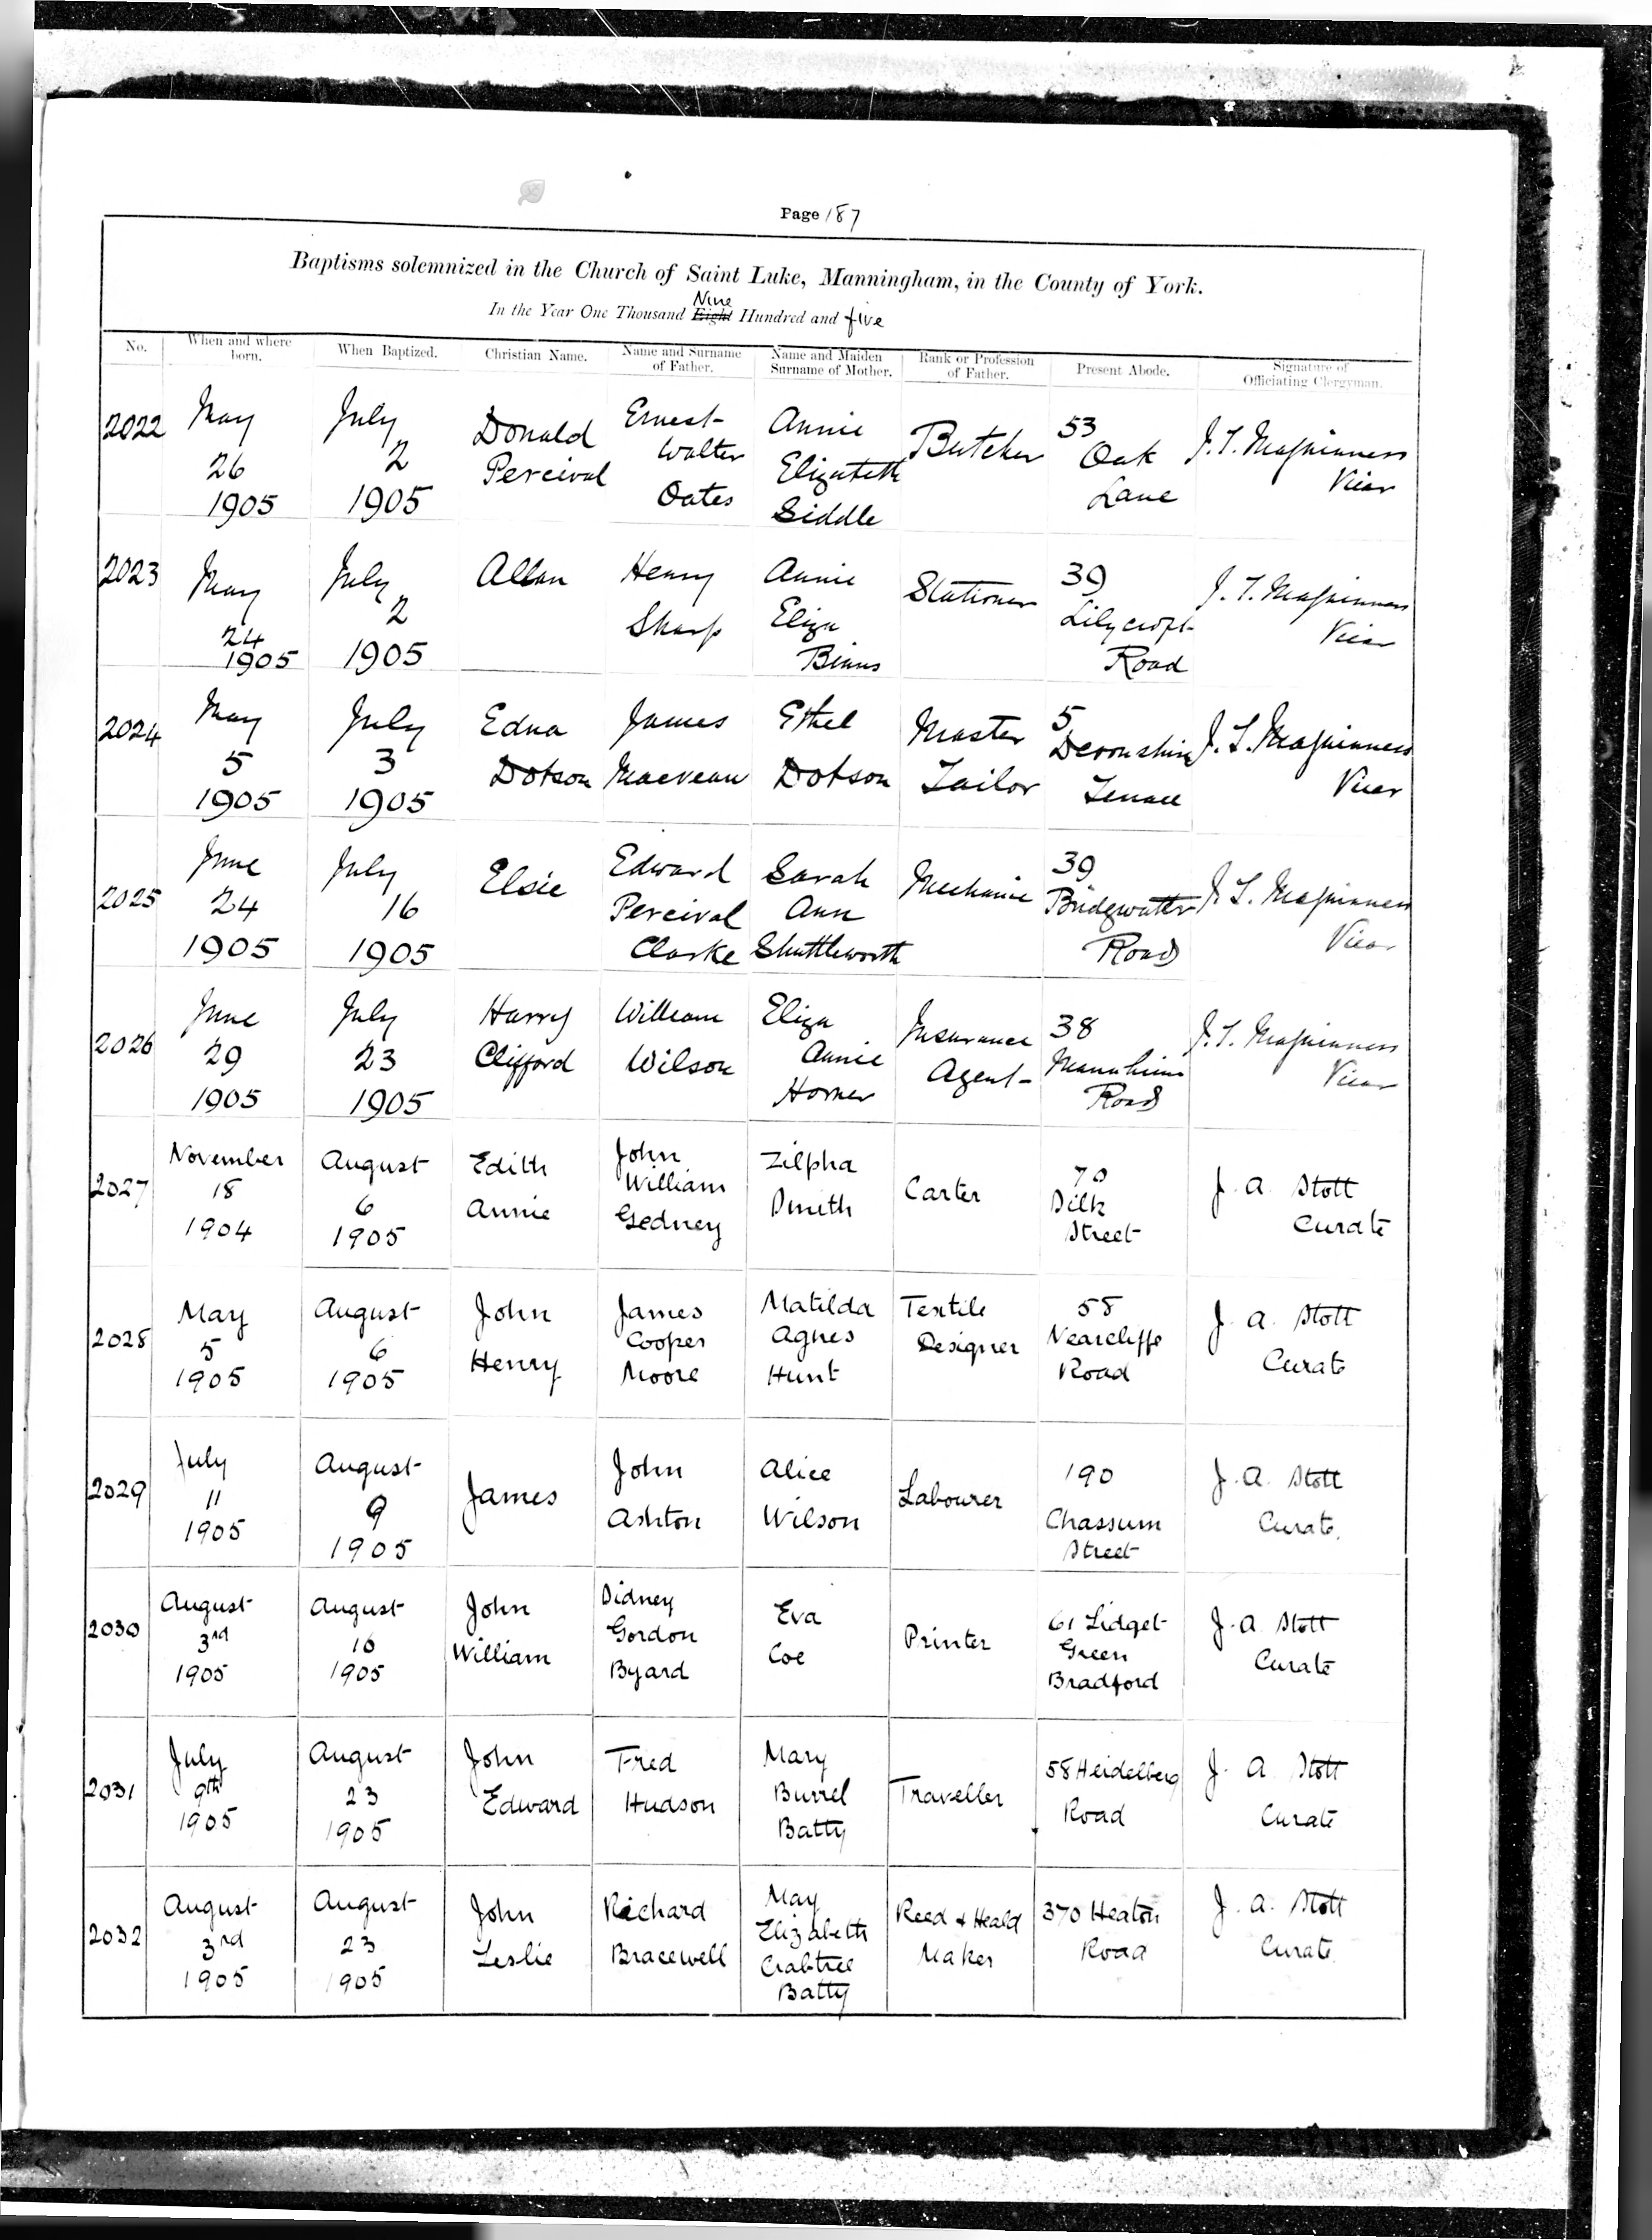 Page 187
Baptisms solemnized in the Church of Saint Luke, Manningham, in the County of York.
Nine
In the Year One Thousand Eight Hundred and five
No. When and where born. When Baptized. Christian Name. Name and Surname of Father. Name and Maiden Surname of Mother. Rank or Profession of Father. Present Abode. Signature of Officiating Clergyman.
2022 May 26 1905 July 2 1905 Donald Percival Ernest Walter Oates Annie Elizabeth Siddle Butcher 53 Oak Lane J. T. Vicar
2023 May 24 1905 July 2 1905 Allan Henry Sharp Annie Eliza Binns Stationer 39 Lilycroft Road J. T. Vicar
2024 May 5 1905 July 3 1905 Edna Dobson James Macvean Ethel Dobson Master Tailor 5 Devonshire Terrace J. T. Vicar
2025 June 24 1905 July 16 1905 Elsie Edward Percival Clarke Sarah Ann Shuttleworth Mechanic 39 Bridgwater Road J. T. Vicar
2026 June 29 1905 July 23 1905 Harry Clifford William Wilson Eliza Annie Horner Insurance Agent 38 Mannheim Road J. T. Vicar
2027 November 18 1904 August 6 1905 Edith Annie John William Gedney Zilpha Smith Carter 70 Silk Street J. A. Stott Curate
2028 May 5 1905 August 6 1905 John Henry James Cooper Moore Matilda Agnes Hunt Textile Designer 58 Nearcliffe Road J. A. Stott Curate
2029 July 11 1905 August 9 1905 James John Ashton Alice Wilson Labourer 190 Chassum Street J. A. Stott Curate.
2030 August 3rd 1905 August 16 1905 John William Sidney Gordon Byard Eva Coe Printer 61 Lidget Green Bradford J. A. Stott Curate
2031 July 9th 1905 August 23 1905 John Edward Fred Hudson Mary Burrel Batty Traveller 58 Heidelberg Road J. A. Stott Curate
2032 August 3rd 1905 August 23 1905 John Leslie Richard Bracewell May Elizabeth Crabtree Batty Reed & Heald Maker 370 Heaton Road J. A. Stott Curate